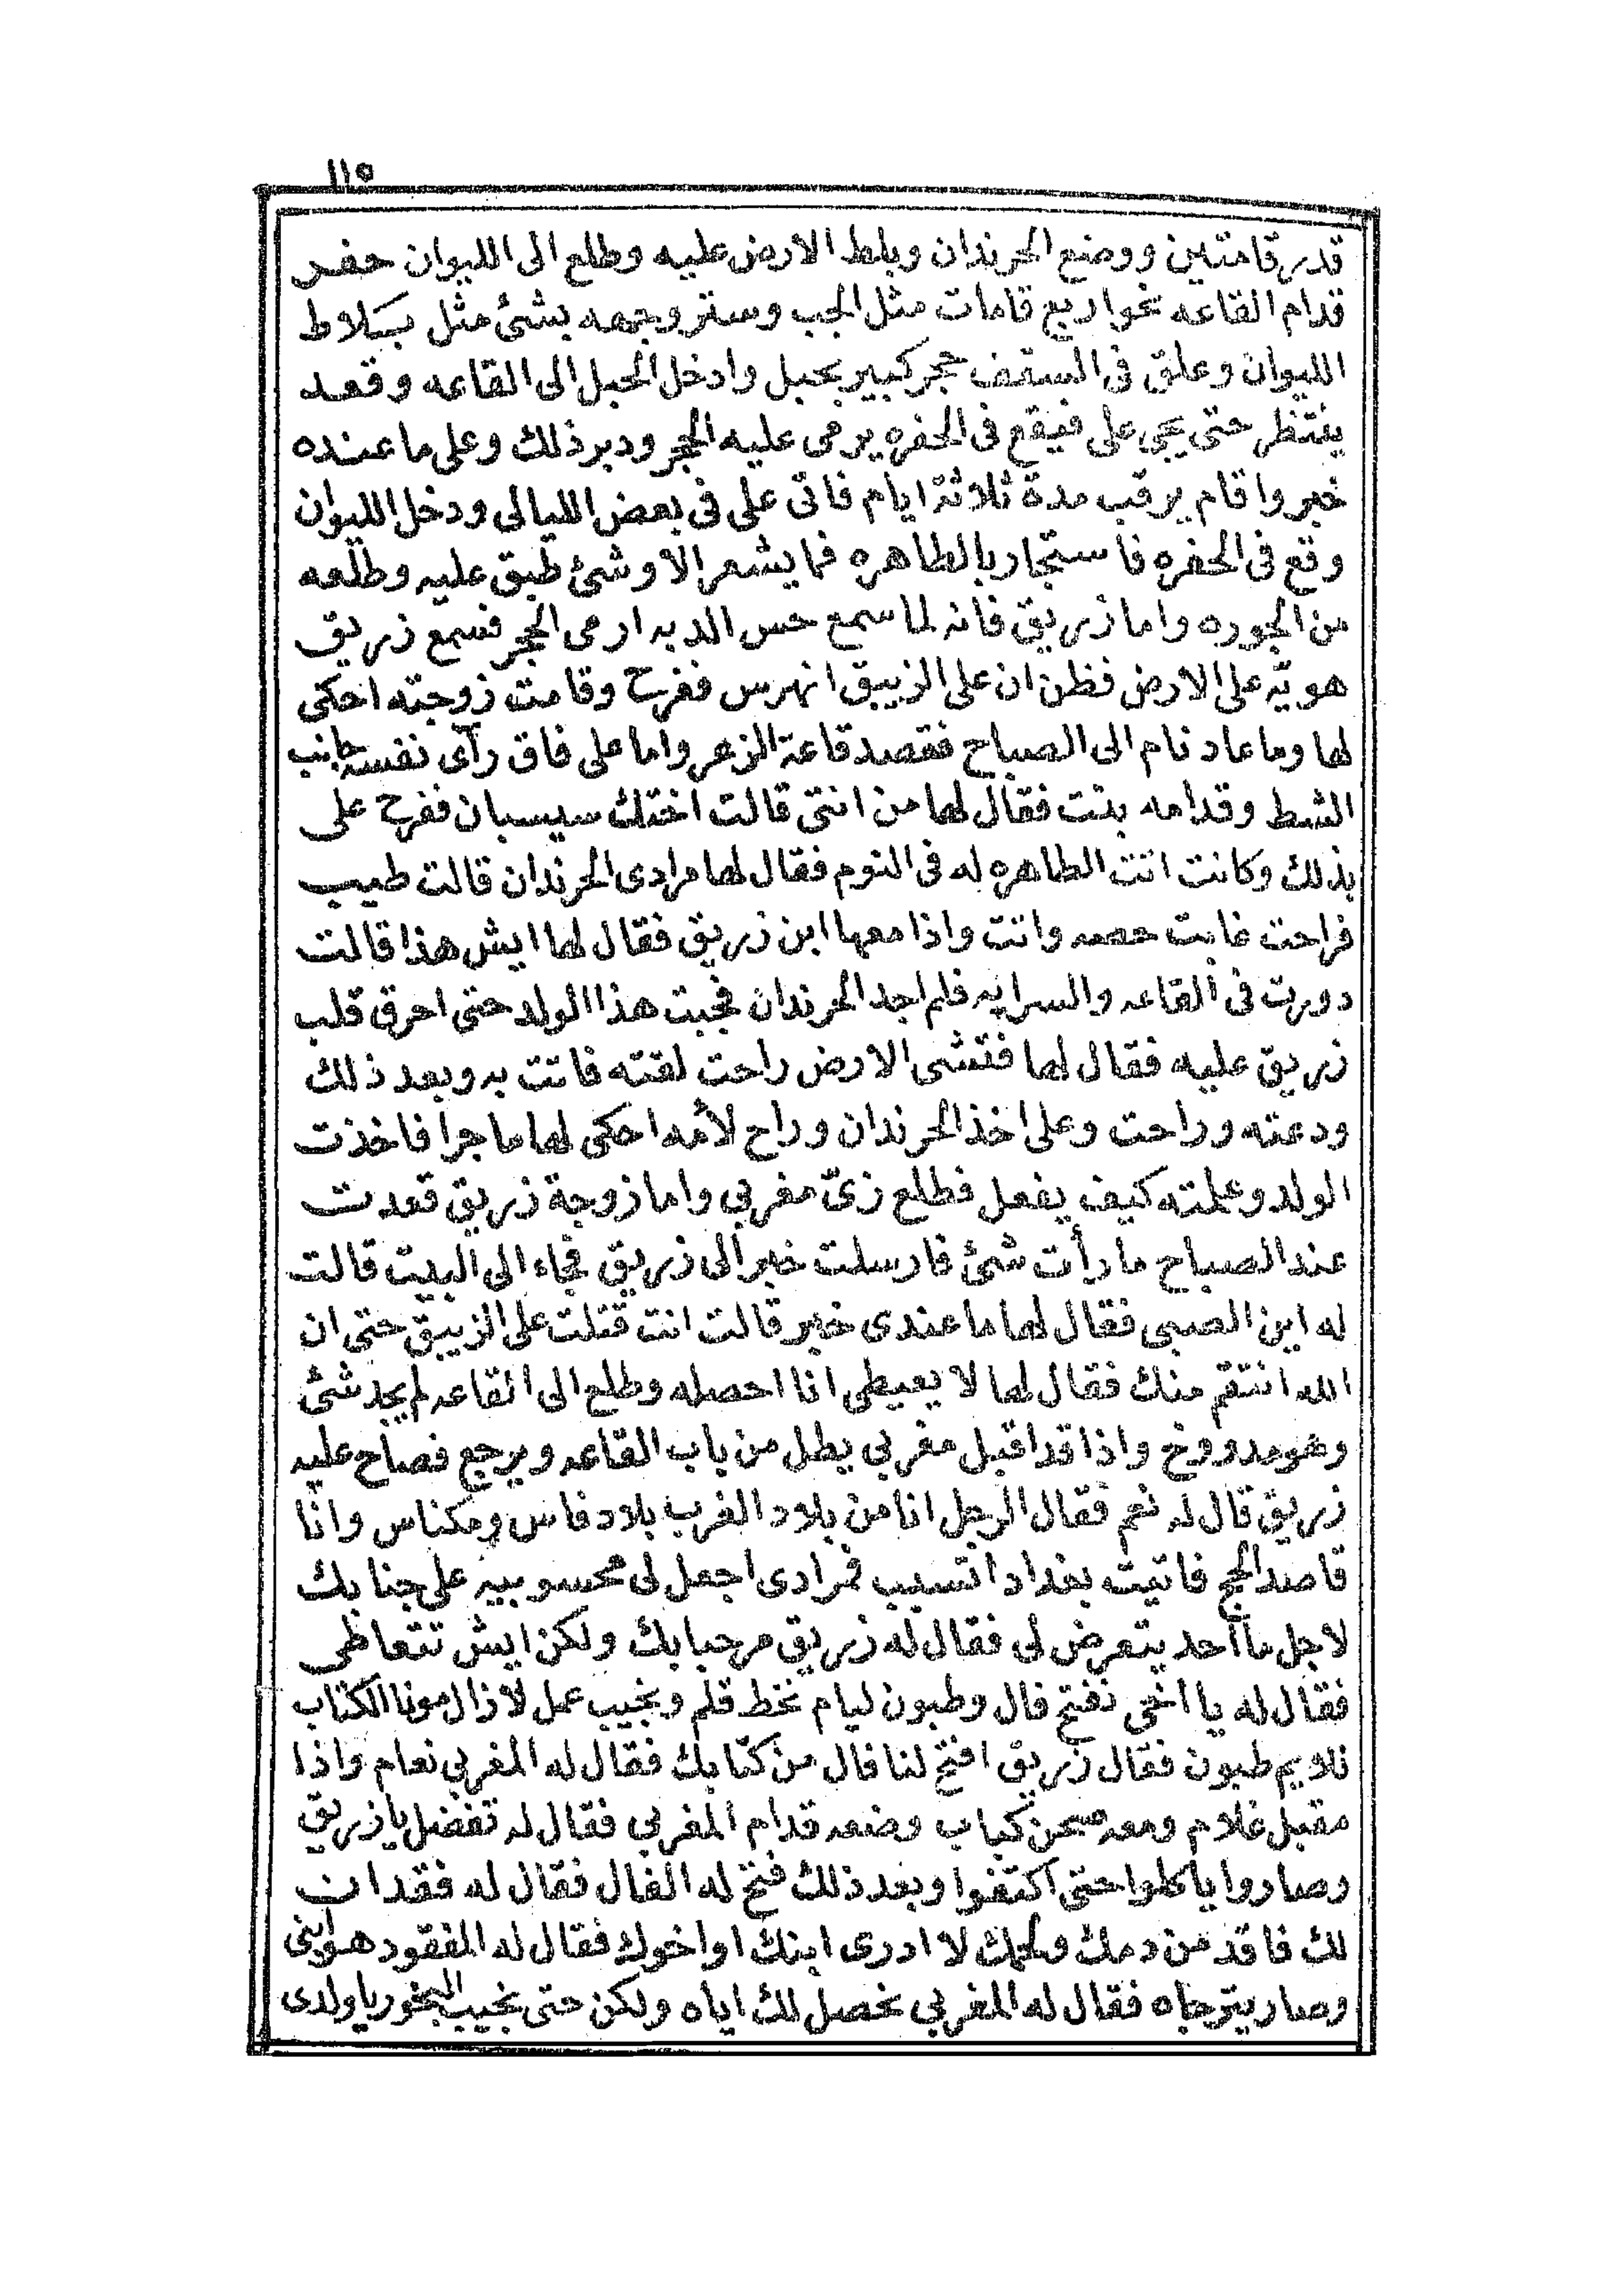 ١١٥
قدر قامتين ووضع الحرندان وبلط الارض عليه وطلع الى الليوان حفر
قدام القاعه نحوا ربع قامات مثل الجب وستر وجهه بشئ مثل بسلاط
الليوان وعلق فى السقف حجر كبير بحبل وادخل الحبل الى القاعه وقعد
ينتظر حتى يجى على فيقع فى الحفره يرمى عليه الحجر ودبر ذلك وعلى ما عنده
خبر واقام يرقب مدة ثلاثة ايام فاتى على فى بعض الليالى ودخل الليوان
وقع فى الحفره فاستجار بالطاهره فما يشعر الا وشئ طبق عليه وطلعه
من الجوره واما زريق فانه لما سمع حس الدبه ارمى الحجر فسمع زريق
هويّه على الارض فظن ان على الزيبق انهرس ففرح وقامت زوجته احكى
لها وما عاد نام الى الصباح فقصد قاعة الزعر واما على فاق رآى نفسه جانب
الشط وقدامه بنت فقال لها من انتى قالت اختك سيسبان ففرح على
بذلك وكانت اتت الطاهره له فى النوم فقال لها مرادى الحرندان قالت طيب
فراحت غابت حصه واتت واذا معها ابن زريق فقال لها ايش هذا قالت
دورت فى القاعه والسرايه فلم اجد الحرندان فجبت هذا الولد حتى احرق قلب
زريق عليه فقال لها فتشى الارض راحت لقته فاتت به وبعد ذلك
ودعته وراحت وعلى اخذ الحرندان وراح لأمه احكى لها ما جرا فاخذت
الولد وعلمته كيف يفعل فطلع زىّ مغربي واما زوجة زريق قعدت
عند الصباح ما رأت شئ فارسلت خبر الى زريق فجاء الى البيت قالت
له اين الصبى فقال لها ما عندى خبر قالت انت قتلت على الزيبق حتى ان
الله انتقم منك فقال لها لا يعيطى انا احصله وطلع الى القاعه لم يجد شئ
وهو مدووخ واذا قد اقبل مغربي يطل من باب القاعه ويرجع فصاح عليه
زريق قال له نعم فقال الرجل انا من بلاد الغرب بلاد فاس ومكناس وانا
قاصد الحج فاتيت بغداد اتسبب فمرادى اجعل لى محسوبيه على جنابك
لاجل ما احد يتعرض لى فقال له زريق مرحبا بك ولكن ايش تتعاطى
فقال له يا اخى نفتح فال وطبون ليام نخط قلم ونجيب عمل لازال مونا الكتاب
نلايم طبون فقال زريق افتح لنا فال من كتابك فقال له المغربي نعام واذا
مقبل غلام ومعه صحن كباب وضعه قدام المغربي فقال له تفضل يا زريق
وصاروا ياكلوا حتى اكتفوا وبعد ذلك فتح له الفال فقال له فقدان
لك فاقد من دمك ولحمك لا ادرى ابنك او اخوك فقال له المفقود هو ابنى
وصار يترجاه فقال له المغربي نحصل لك اياه ولكن حتى نجيب البخور يا ولدى